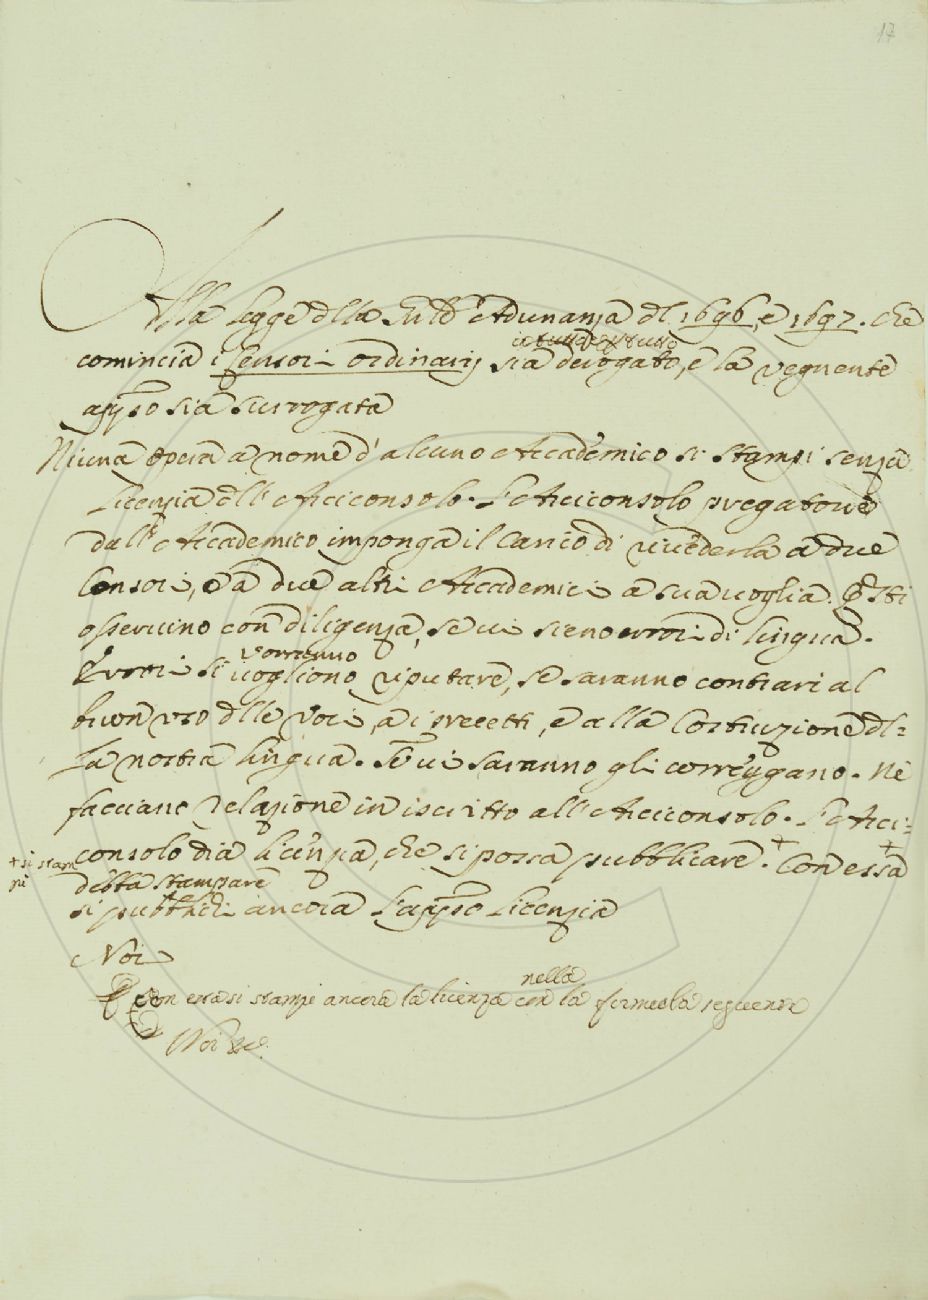 17
Alla Legge dlla Sudd.ª Adunanza dl 1696, e 1697. che
comincia i Censori ordinarij sia derogato, e la seguente
app.so sia surrogata
Niuna opera a nome d'alcuno Accademico si stampi senza
licenzia dll'Arciconsolo. L'Arciconsolo pregatone
dall'Accademico imponga il Carico di rivederla a due
Censori, e a due altri Accademici a sua voglia. Qsti
osservino con diligenza, se vi sieno errori di lingua.
vorranno
Errori si vogliono riputare, se saranno contrari al
buon uso dlle voci, a i precetti, e alla Costruzione dl=
la nostra lingua. Se vi saranno gli correggano. Ne
facciano relazione in iscritto all'Arciconsolo. L'Arci=
consolo dia licenzia, che si possa pubblicare. + Con essa +
+ si stam
pi
detta stampare
si pubblichi ancora l'app.so licenzia
Noi
nella
Con essa si stampi ancora la licenza con la formola seguente
Noi &c.